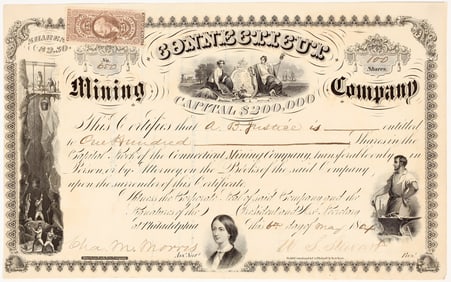 SHARES
$2.50
CONNECTICUT
No.
100
Shares
Mining Company
CAPITAL $200,000
This Certifies that A. B. Justice is entitled
to One Hundred Shares in the
Capital Stock of the Connecticut Mining Company, transferable only in
Person or by Attorney on the Books of the said Company
upon the surrender of this Certificate.
Witness the Corporate Seal of said Company and the
Signatures of the President and
at Philadelphia this day of May 1864
Chas. M. Morris
W. S. Stewart